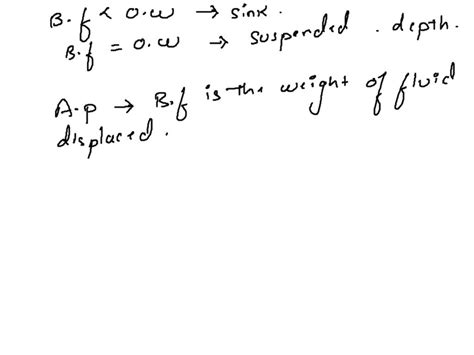 B.f < O.W → sink.
B.f = O.W → suspended . depth.
A.p → B.f is the weight of fluid
displaced.